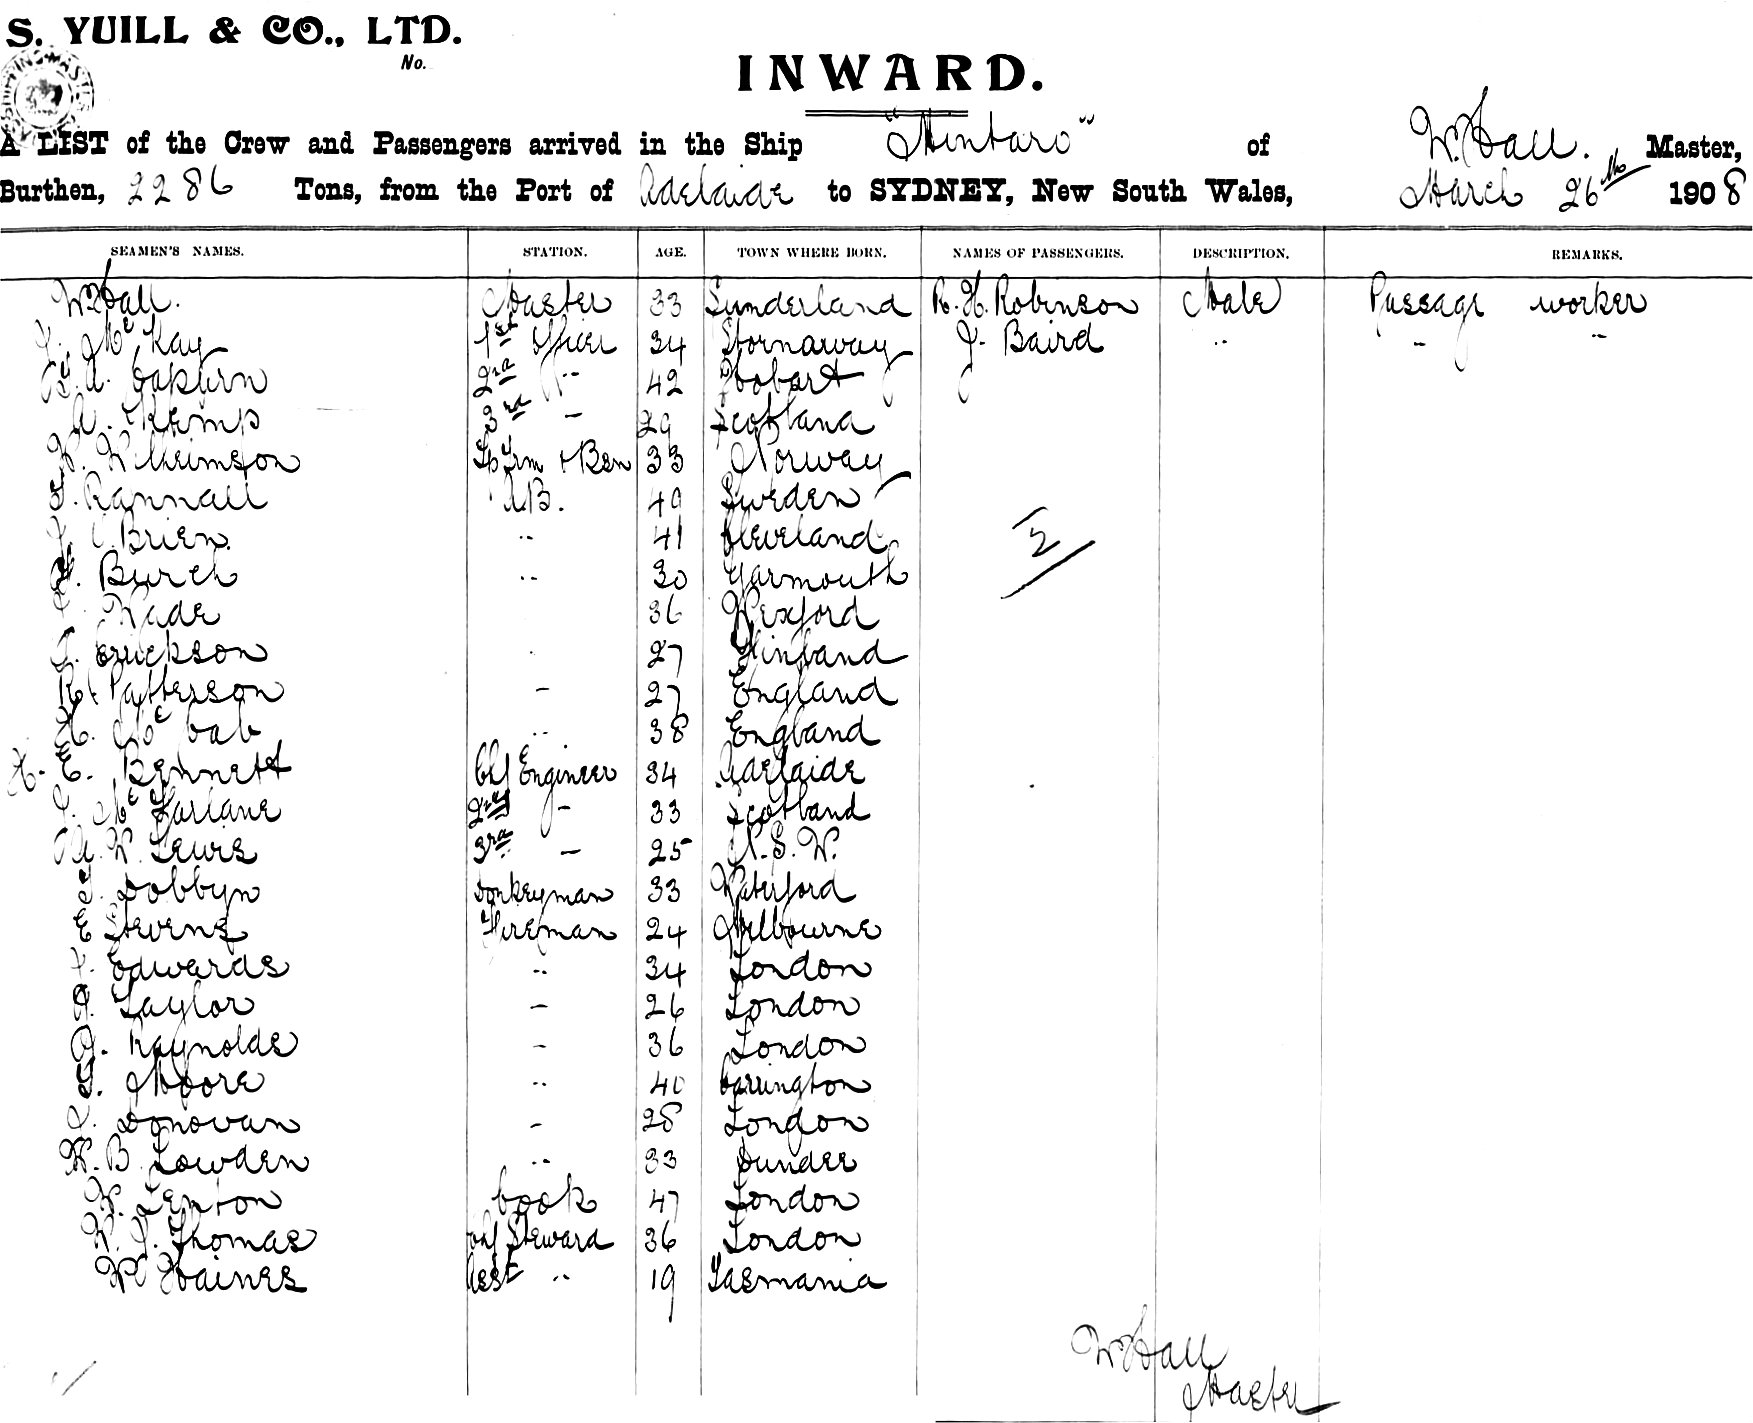 S. YUILL & CO., LTD.
No.
INWARD.
A LIST of the Crew and Passengers arrived in the Ship "Mintaro" of W. Hall. Master,
Burthen, 2286 Tons, from the Port of Adelaide to SYDNEY, New South Wales, March 26th 1908
SEAMEN'S NAMES. STATION. AGE. TOWN WHERE BORN. NAMES OF PASSENGERS. DESCRIPTION. REMARKS.
W Hall. Master 33 Sunderland R. H. Robinson Male Passage worker
Mc Kay 1st Officer 34 Stornaway J. Baird " " "
2nd " 42 Hobart
A. Kemp 3rd " 29 Scotland
W. Wilheimson 33 Norway
Rannall A.B. 49 Sweden
O'Brien. " 41 Cleveland
Burch " 30 Yarmouth
Wade 36 Wexford
Errickson 27 Finland
R. Patterson " 27 England
Mc Cab " 38 England
H. E. Bennett Chf Engineer 34 Adelaide
Mc Farlane 2nd " 33 Scotland
W. Lewis 3rd " 25 N. S. W.
Dobbyn Donkeyman 33 Waterford
E Stevens Fireman 24 Melbourne
Edwards " 34 London
Taylor " 26 London
Raynolds " 36 London
Moore " 40 Carrington
Donovan " 28 London
W. B. Lowden " 33 Dundee
W. Lenton Cook 47 London
W. J. Thomas Chf Steward 36 London
W Haines Asst " 19 Tasmania
2
W Hall
Master